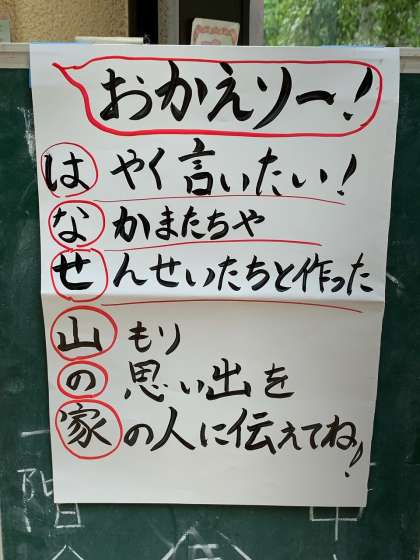 おかえりー!
はやく言いたい!
なかまたちや
せんせいたちと作った
山もり
の思い出を
家の人に伝えてね!